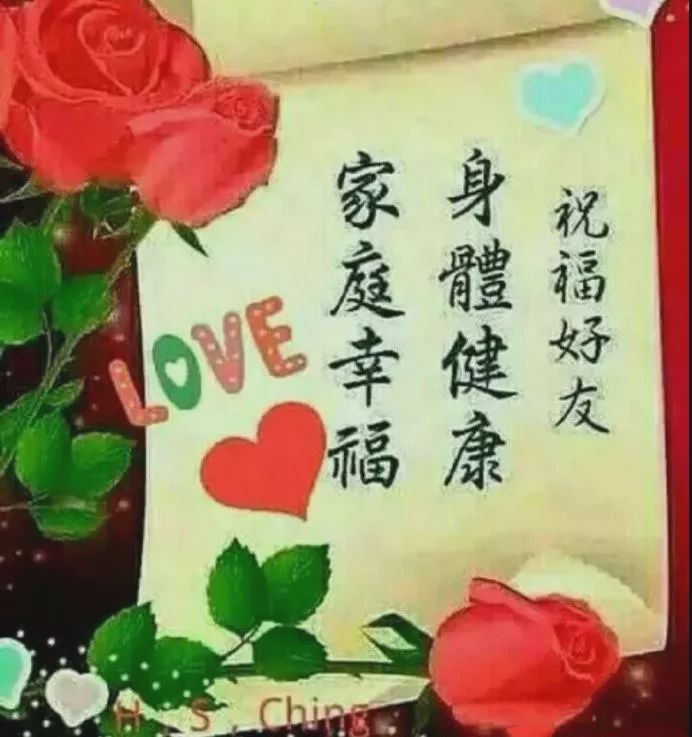 祝福好友
身體健康
家庭幸福
LOVE
H . S . Ching